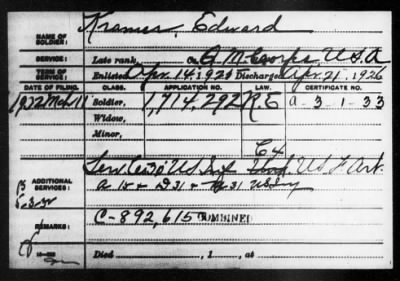 NAME OF SOLDIER: Kramus, Edward
SERVICE: Late rank, Co. Q.M. Corps, U.S.A
TERM OF SERVICE: Enlisted Apr. 14, 1920 Discharged Apr. 21, 1926
DATE OF FILING. CLASS. APPLICATION NO. LAW. CERTIFICATE NO.
1932 Mch 11 Soldier, 1,714,292 R E A-3-1-33
Widow,
Minor,
C4
ADDITIONAL SERVICES: Serv. Co. U.S. Inf. U.S. F. Art.
31 U.S. Inf
REMARKS: C-892,615
Died , 1 , at